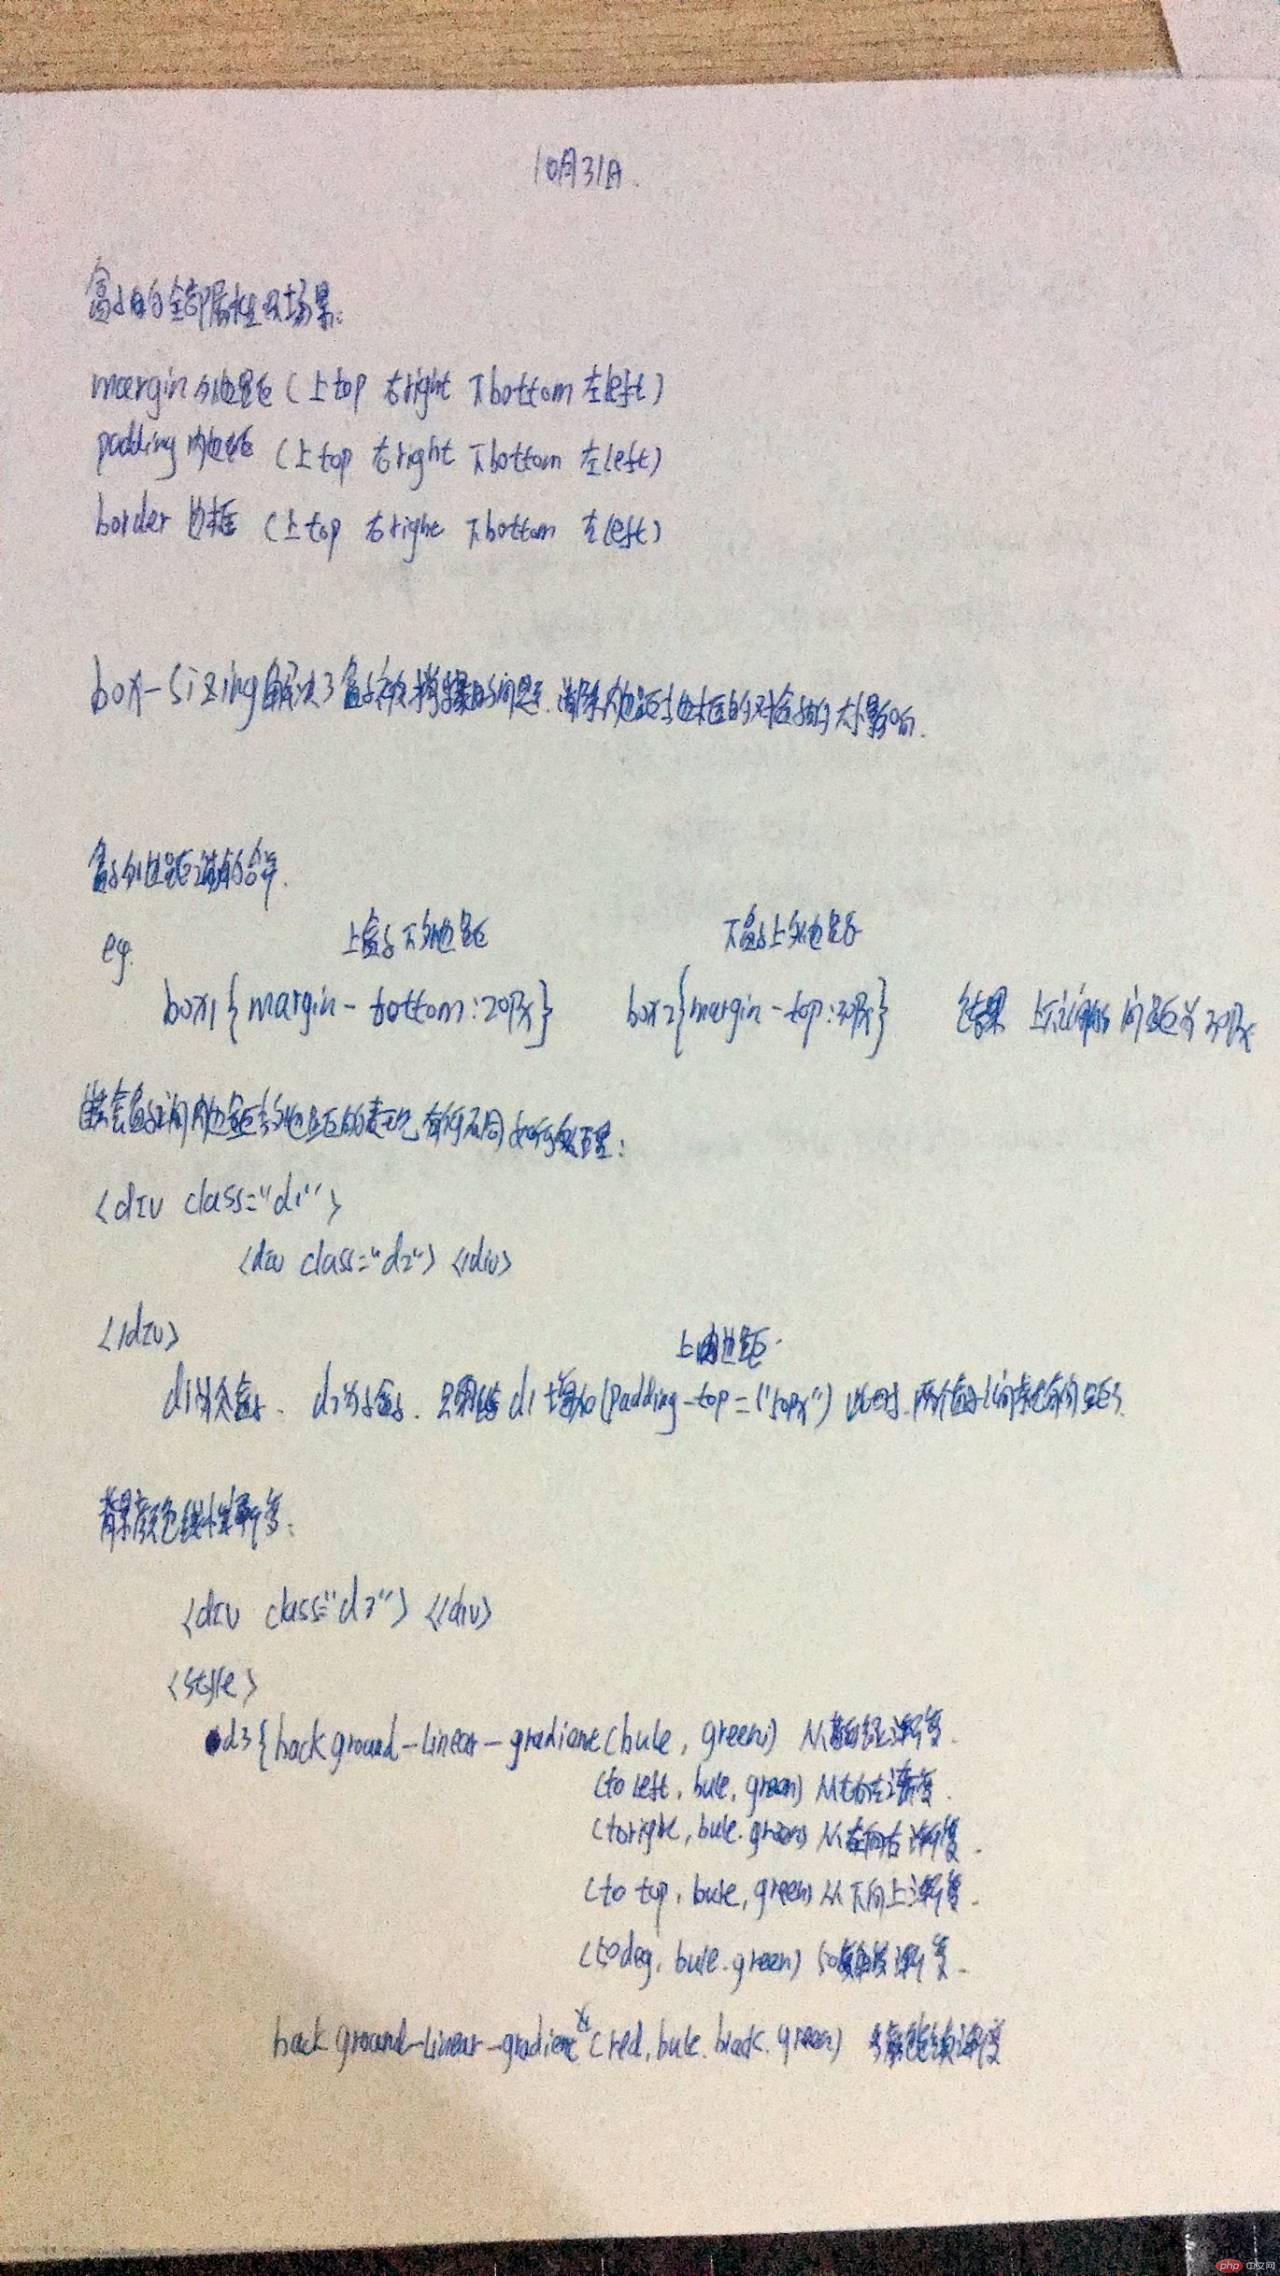 10月31日.
盒子的全部属性及场景:
margin 外边距 (上top 右right 下bottom 左left)
padding 内边距 (上top 右right 下bottom 左left)
border 边框 (上top 右right 下bottom 左left)
box-sizing 解决了盒子被撑的问题. 消除内边距与边框的对盒子的大小影响.
盒子外边距的合并.
上盒子下外边距 下盒子上外边距
eg.
box1{margin-bottom:20px} box2{margin-top:30px} 结果 上下之间的间距为30px
嵌套盒子之间内边距与外边距的表现有何不同如何处理:
<div class="d1">
<div class="d2"> </div>
</div>
上内边距.
d1为父盒子. d2为子盒子. 只需给d1增加(padding-top=("50px") 此时. 两个盒子之间就有间距了.
背景颜色线性渐变:
<div class="d3"> </div>
<style>
.d3{background-linear-gradient(bule, green) 渐变.
(to left, bule, green) 从右向左渐变.
(to right, bule. green) 从左向右渐变.
(to top, bule, green) 从下向上渐变.
(50deg, bule. green) 50度渐变.
background-linear-gradient (red, bule. black. green) 多颜色渐变
php 中文网